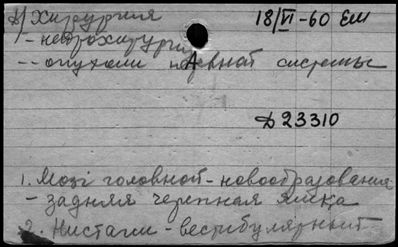 А) хирургия 18/VI-60 ЕМ
- нейрохирургия
-- опухоли нервной системы
Д 23310
1. Мозг головной - новообразования
- задняя черепная ямка
2. Нистагм - вестибулярный